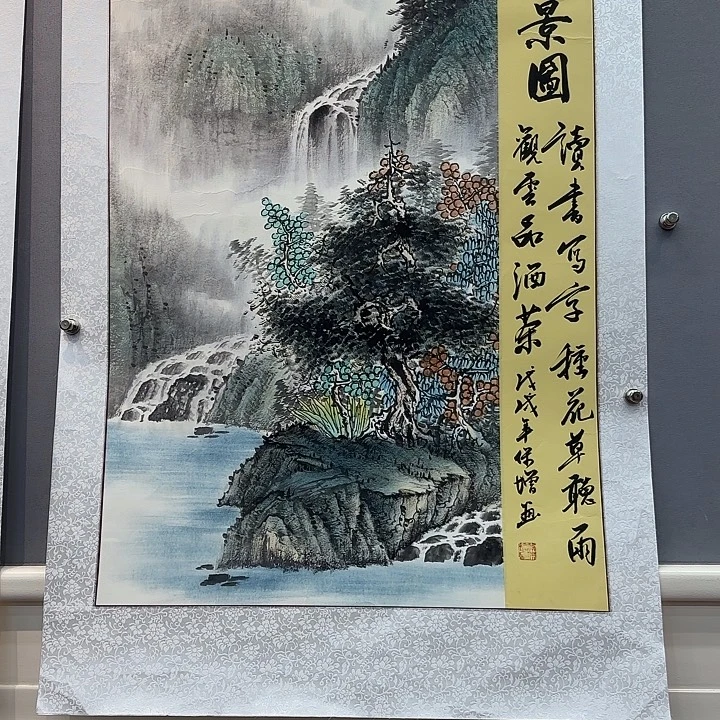 景圖
讀書写字種花草聽雨
觀雲品酒茶
戊戌年保增画